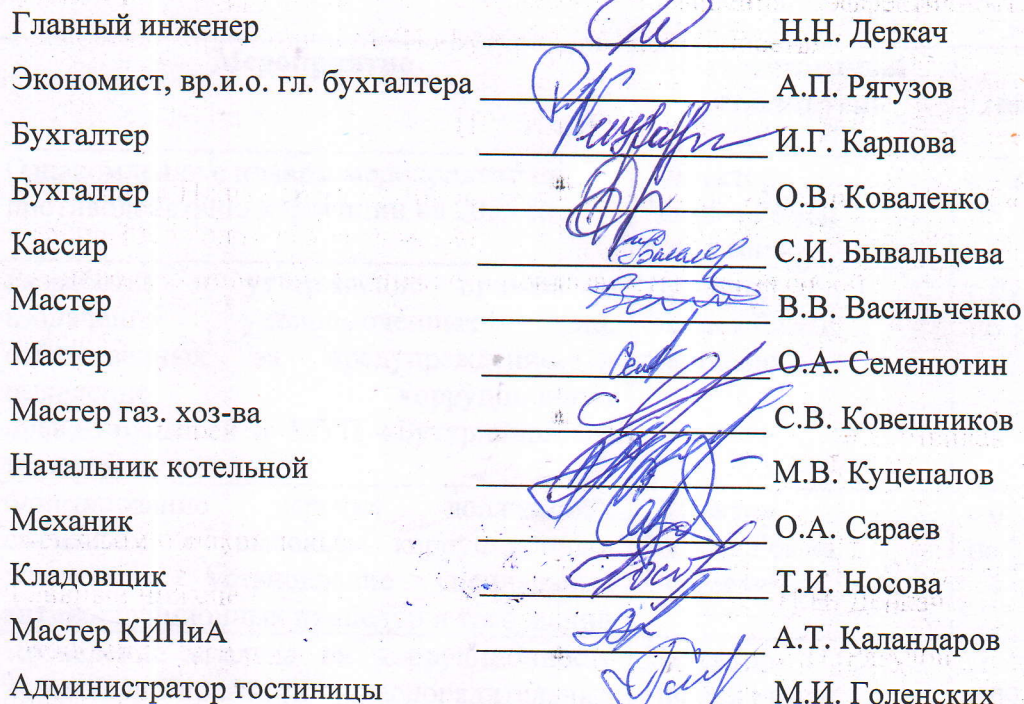 Главный инженер Н.Н. Деркач
Экономист, вр.и.о. гл. бухгалтера А.П. Рягузов
Бухгалтер И.Г. Карпова
Бухгалтер О.В. Коваленко
Кассир С.И. Бывальцева
Мастер В.В. Васильченко
Мастер О.А. Семенютин
Мастер газ. хоз-ва С.В. Ковешников
Начальник котельной М.В. Куцепалов
Механик О.А. Сараев
Кладовщик Т.И. Носова
Мастер КИПиА А.Т. Каландаров
Администратор гостиницы М.И. Голенских